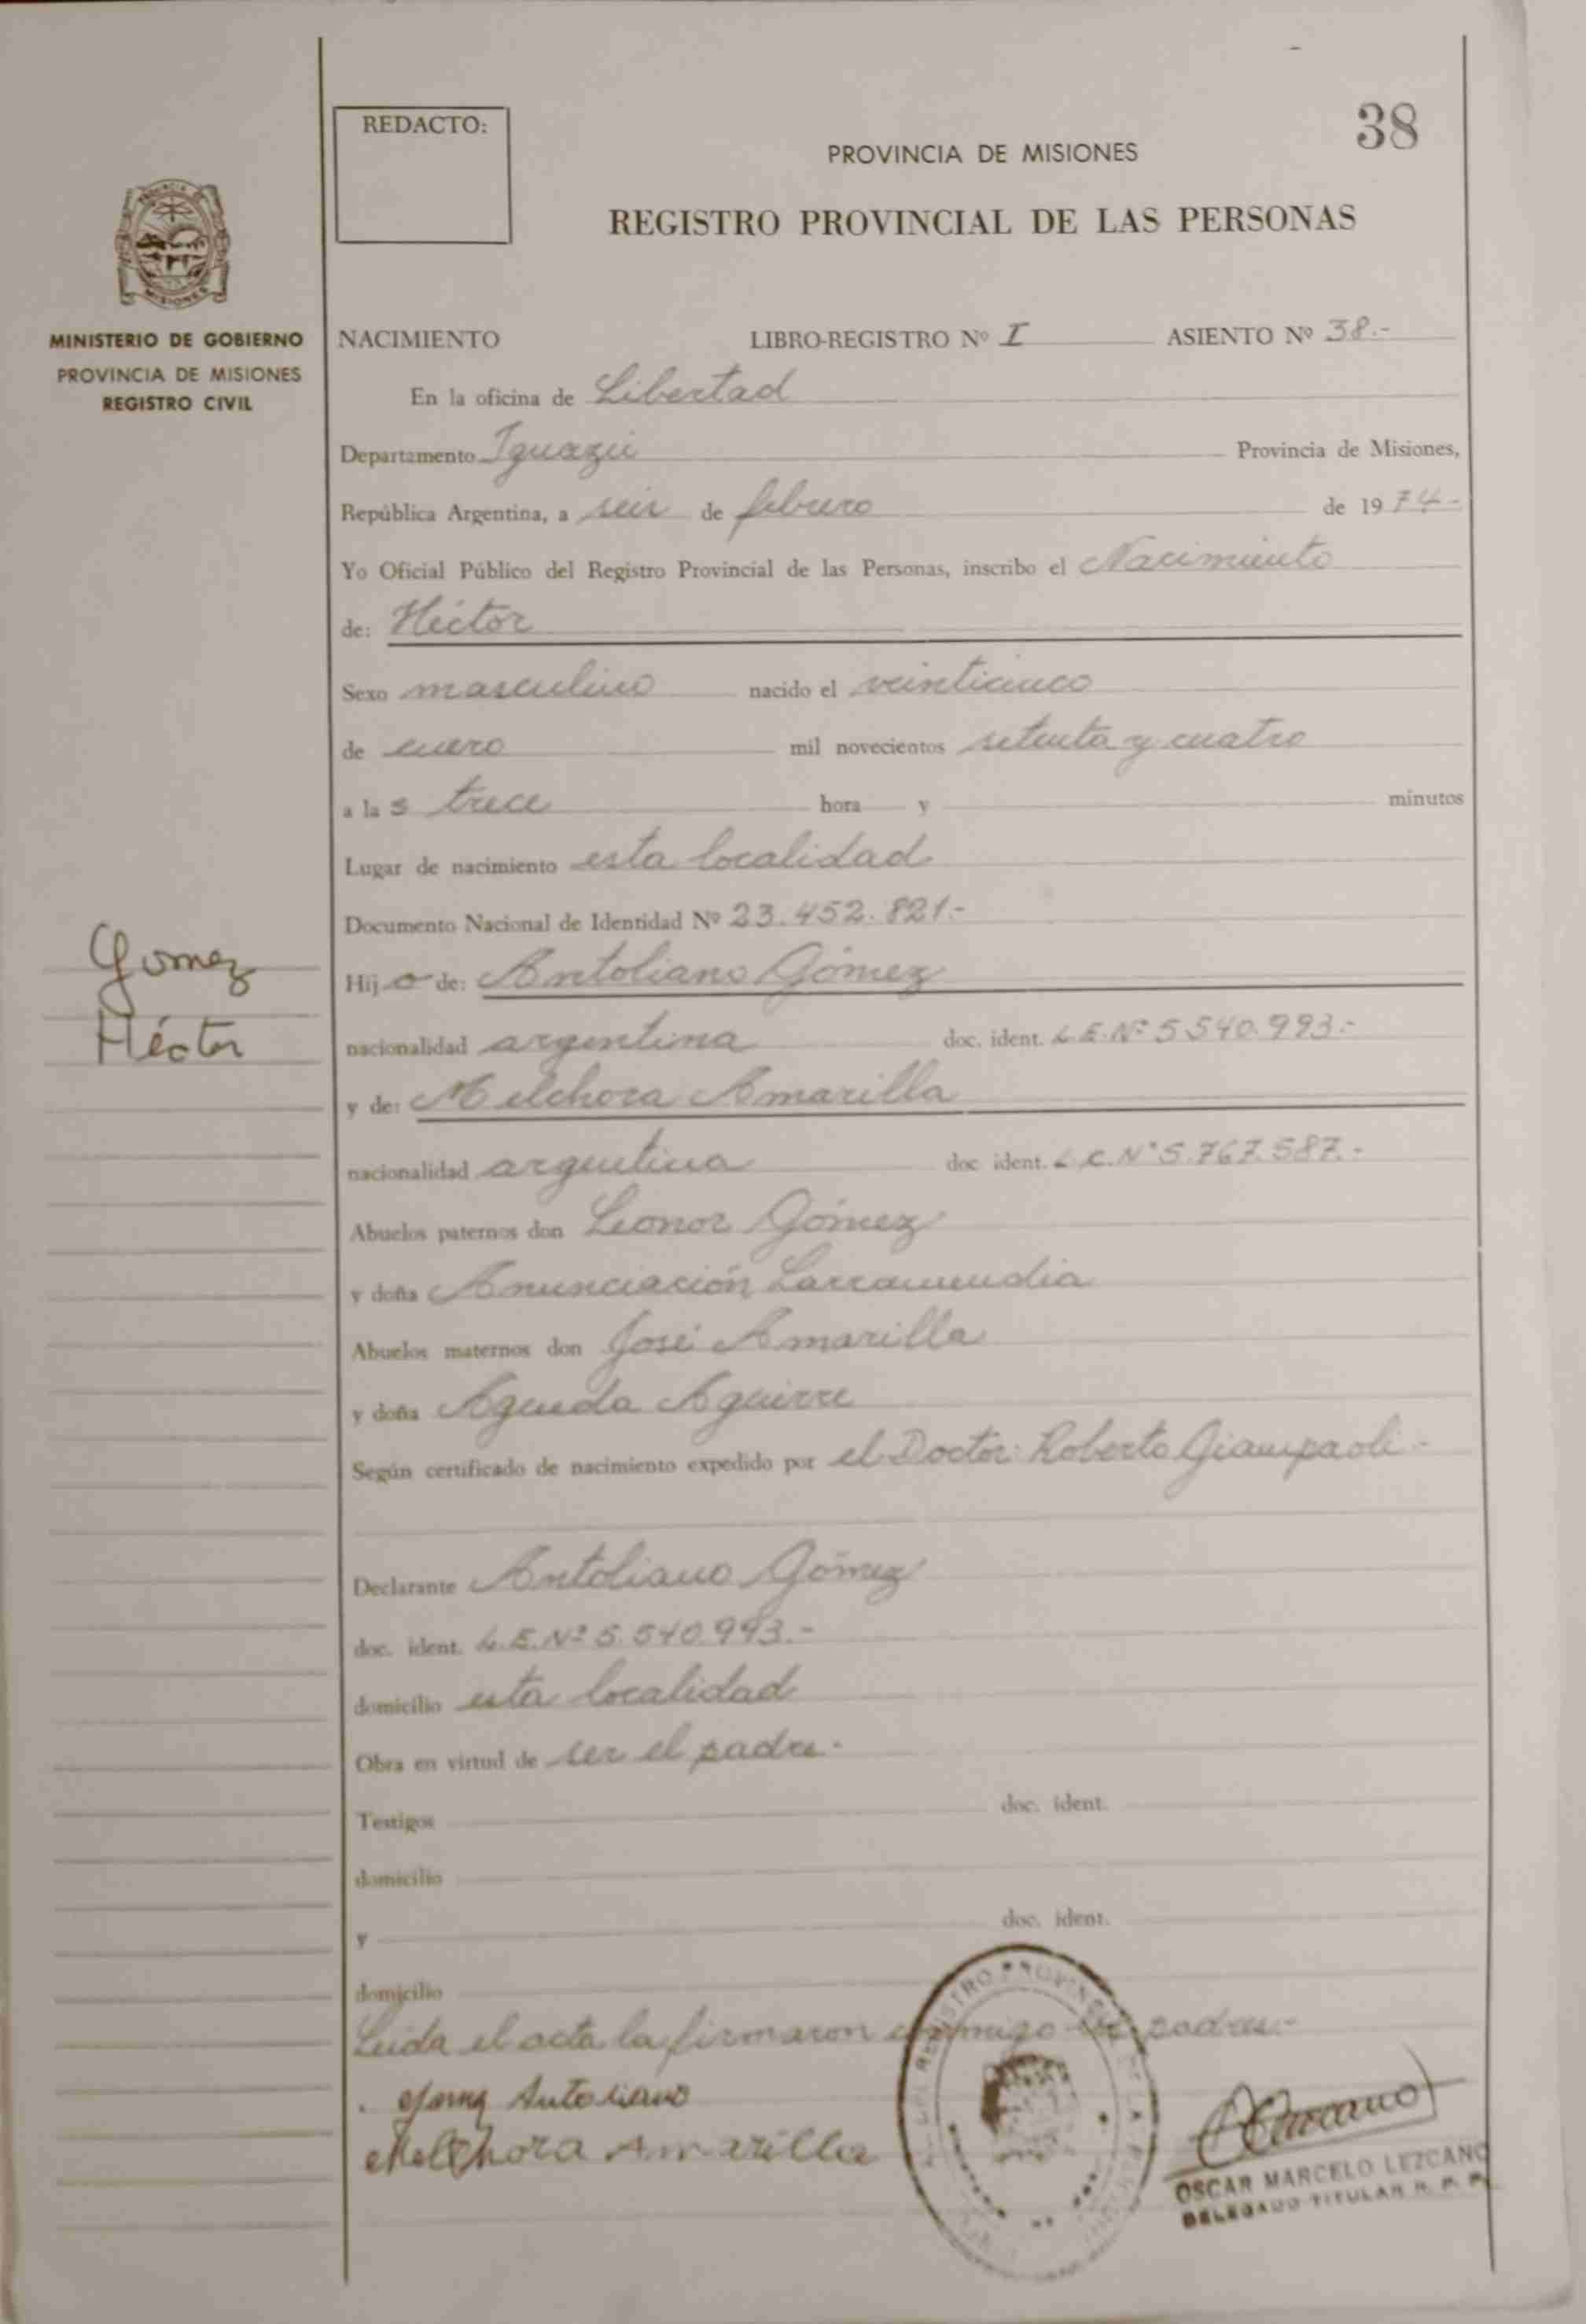 38
REDACTO:
PROVINCIA DE MISIONES
REGISTRO PROVINCIAL DE LAS PERSONAS
MISIONES
MINISTERIO DE GOBIERNO
PROVINCIA DE MISIONES
REGISTRO CIVIL
NACIMIENTO LIBRO-REGISTRO Nº I ASIENTO Nº 38.-
En la oficina de Libertad
Departamento Iguazú Provincia de Misiones,
República Argentina, a seis de febrero de 1974-
Yo Oficial Público del Registro Provincial de las Personas, inscribo el Nacimiento
de: Héctor
Sexo masculino nacido el veinticinco
de enero mil novecientos setenta y cuatro
a la s trece hora y minutos
Lugar de nacimiento esta localidad
Documento Nacional de Identidad Nº 23.452.821.-
Gomez
Héctor
Hij o de: Antoliano Gómez
nacionalidad argentina doc. ident. L.E.Nº 5.540.993.-
y de: Melchora Amarilla
nacionalidad argentina doc ident. L.C.Nº 5.767.587.-
Abuelos paternos don Leonor Gómez
y doña Anunciación Larramendia
Abuelos maternos don José Amarilla
y doña Agueda Aguirre
Según certificado de nacimiento expedido por el Doctor: Roberto Giampaoli-
Declarante Antoliano Gómez
doc. ident. L.E.Nº 5.540.993.-
domicilio esta localidad
Obra en virtud de ser el padre.
Testigos doc. ident.
domicilio
y doc. ident.
domicilio
Leida el acta la firmaron conmigo los padres.-
Antoliano
Melchora Amarilla
REGISTRO PROVINCIAL DE LA
OSCAR MARCELO LEZCANO
DELEGADO TITULAR R. P. P.